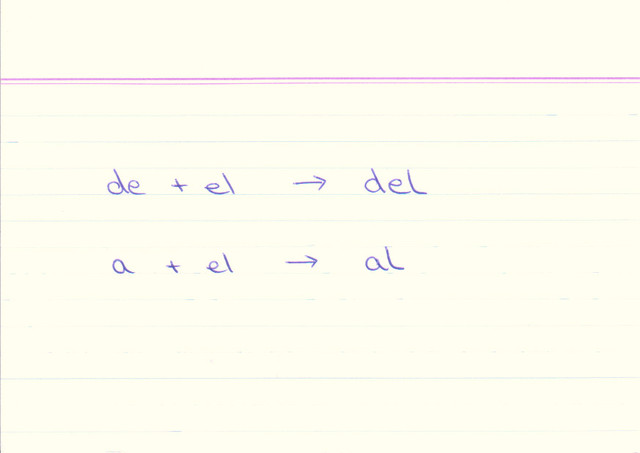 de + el → del
a + el → al